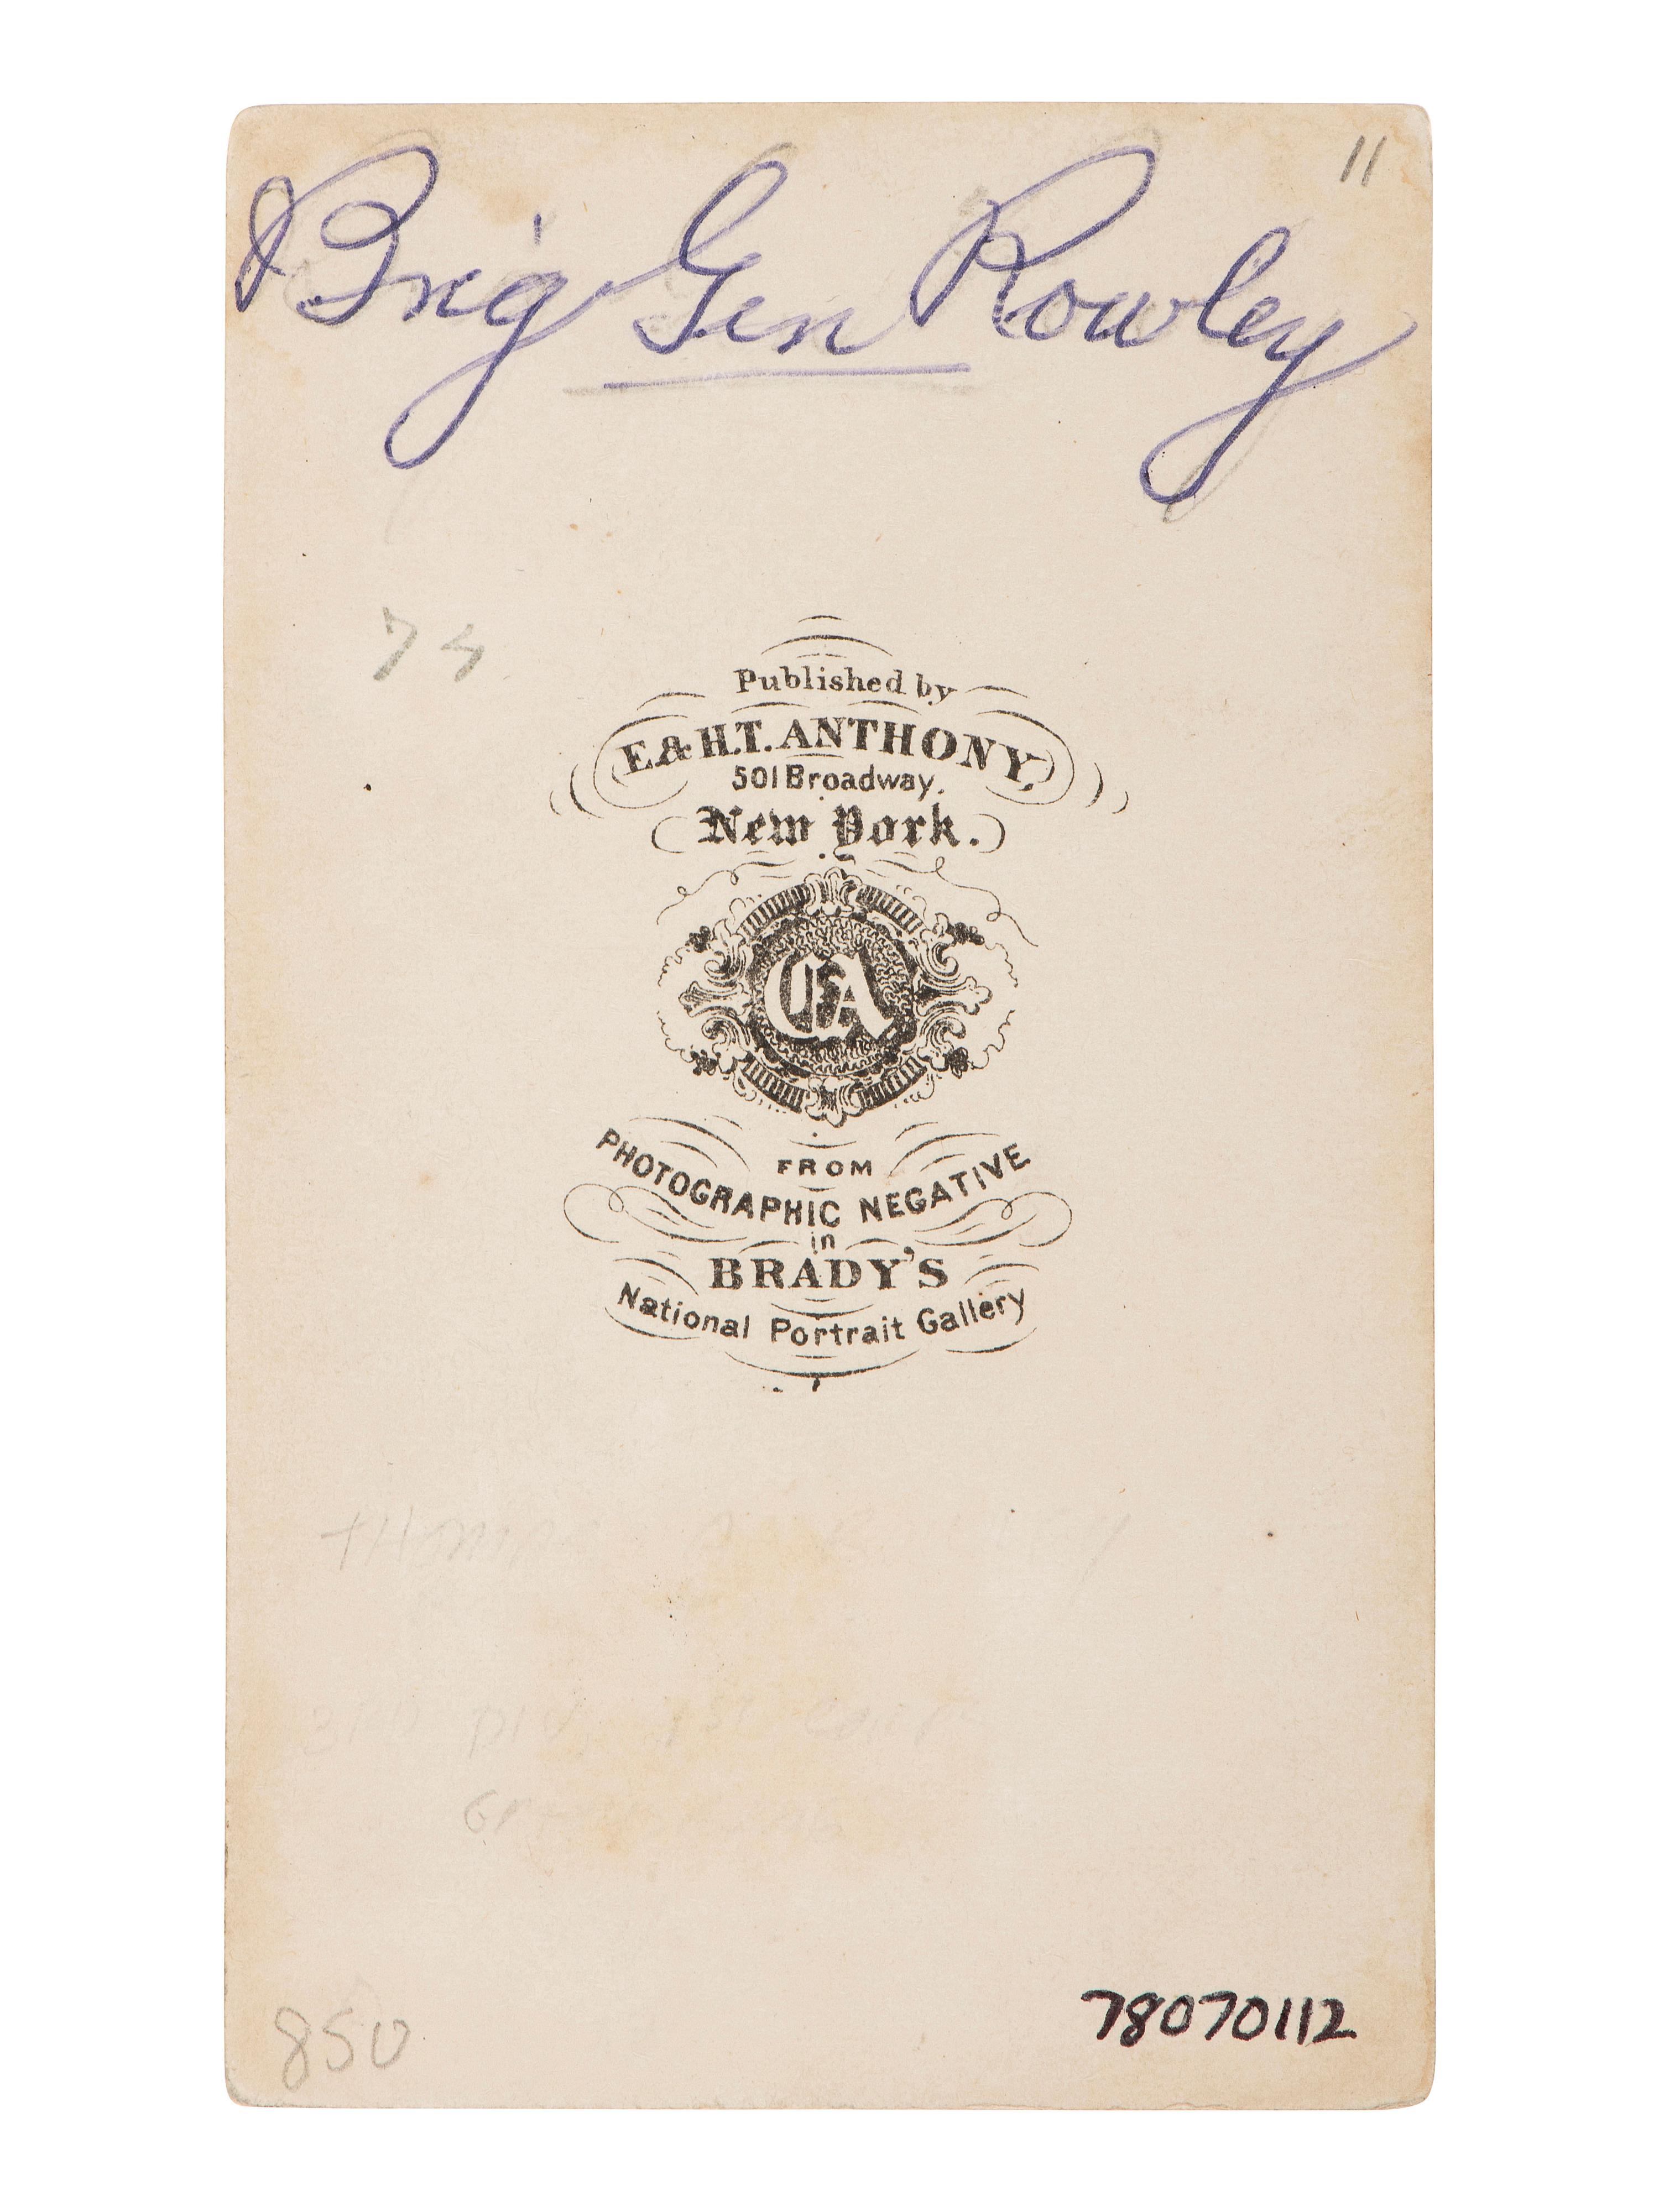 11
Brig Gen Rowley
Published by
E. & H.T. ANTHONY,
501 Broadway.
New York.
EA
FROM
PHOTOGRAPHIC NEGATIVE
in
BRADY'S
National Portrait Gallery
3RD DIV 1st Corps
850
78070112